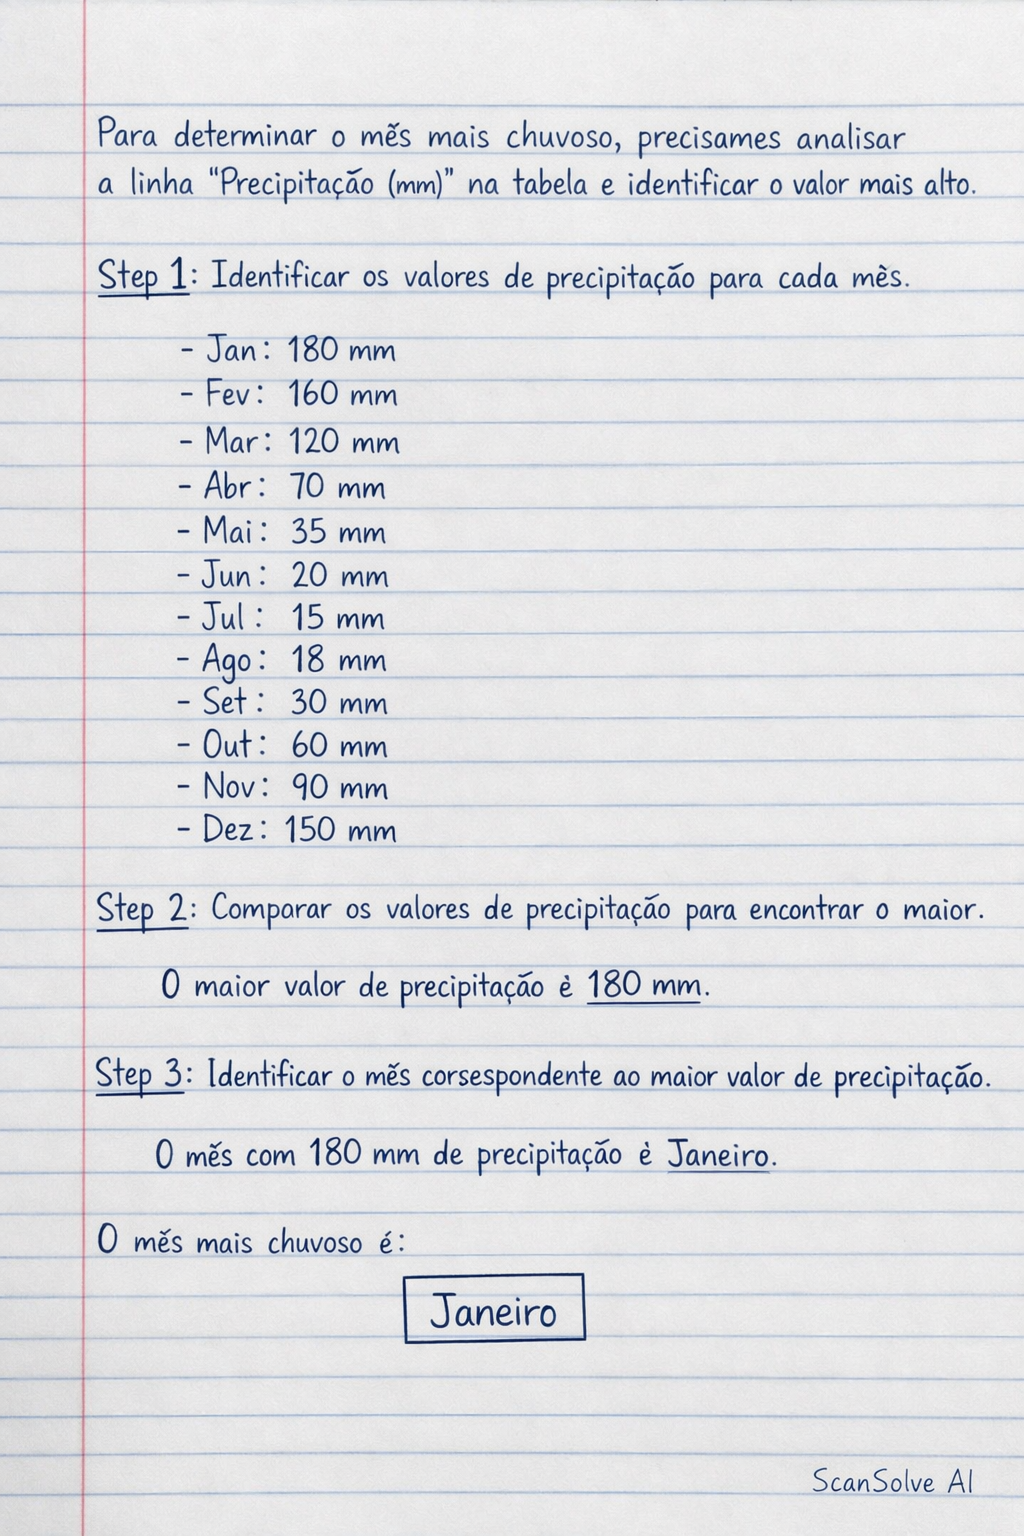 Para determinar o mĕs mais chuvoso, precisames analisar
a linha "Precipitação (mm)" na tabela e identificar o valor mais alto.
Step 1: Identificar os valores de precipitação para cada mês.
- Jan: 180 mm
- Fev: 160 mm
- Mar: 120 mm
- Abr: 70 mm
- Mai: 35 mm
- Jun: 20 mm
- Jul: 15 mm
- Ago: 18 mm
- Set: 30 mm
- Out: 60 mm
- Nov: 90 mm
- Dez: 150 mm
Step 2: Comparar os valores de precipitação para encontrar o maior.
O maior valor de precipitação è 180 mm.
Step 3: Identificar o mĕs corsespondente ao maior valor de precipitação.
O mĕs com 180 mm de precipitação è Janeiro.
O mĕs mais chuvoso é:
Janeiro
ScanSolve AI